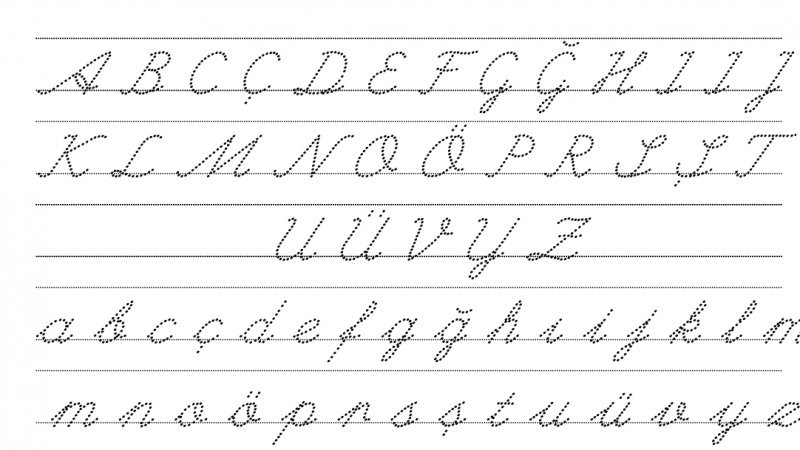 A B C Ç D E F G Ğ H I İ J
K L M N O Ö P R S Ş T
U Ü V Y Z
a b c ç d e f g ğ h ı i j k l m
m n o ö p r s ş t u ü v y z